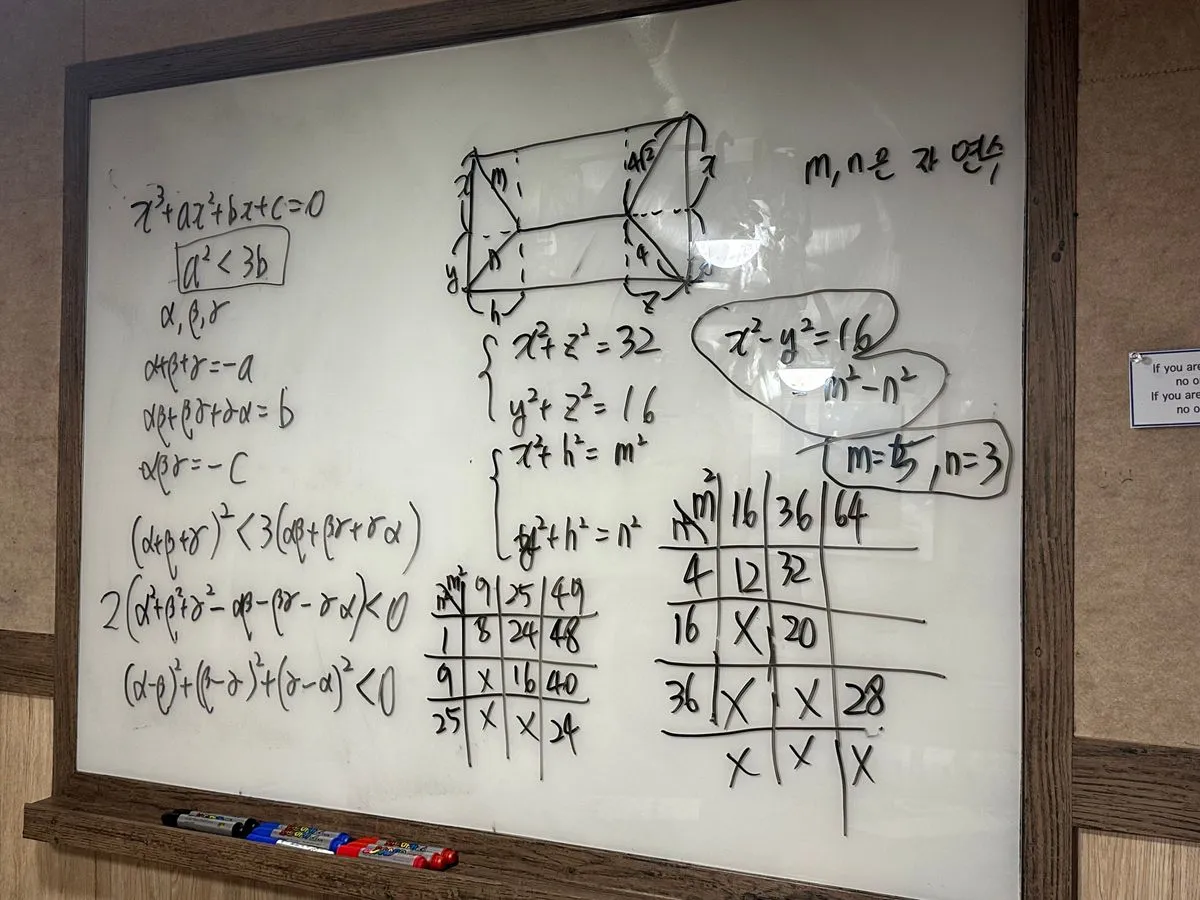 x³+ax²+bx+c=0
a² < 3b
α, β, γ
α+β+γ=-a
αβ+βγ+γα=b
αβγ=-c
(α+β+γ)²<3(αβ+βγ+γα)
2(α²+β²+γ²-αβ-βγ-γα)<0
(α-β)²+(β-γ)²+(γ-α)²<0
x m 4√2 x
y n 4
h z
x²+z²=32
y²+z²=16
x²+h²=m²
y²+h²=n²
n² m² 9 25 49
1 8 24 48
9 x 16 40
25 x x 24
m, n은 자연수
x²-y²=16
m²-n²
m=5, n=3
n² m² 16 36 64
4 12 32
16 X 20
36 X X 28
X X X
If you are
no o
If you are
no o